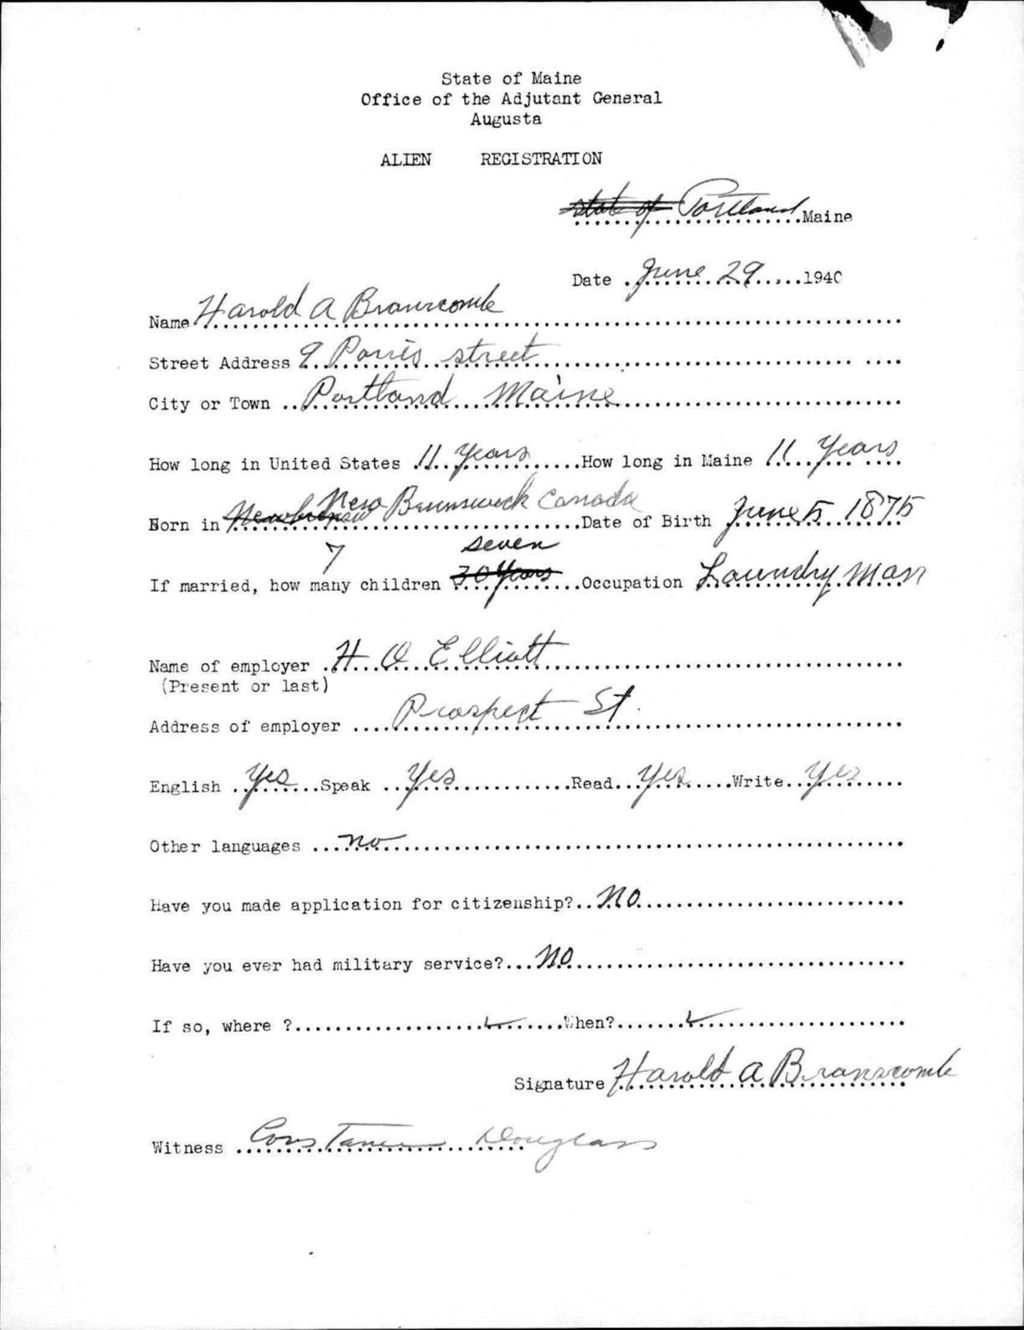 State of Maine
Office of the Adjutant General
Augusta
ALIEN REGISTRATION
State of Portland Maine
Date June 29 1940
Name Harold A Branscomb
Street Address 9 Parris street
City or Town Portland Maine
How long in United States 11 Years How long in Maine 11 Years
Born in New Brunswick Canada Date of Birth June 5 1875
7 seven
If married, how many children 30 Years Occupation Laundry Man
Name of employer H O Elliott
(Present or last)
Address of employer Prospect St.
English Yes Speak Yes Read Yes Write Yes
Other languages no
Have you made application for citizenship? NO
Have you ever had military service? NO
If so, where ? When?
Signature Harold A Branscomb
Witness Constance Douglass